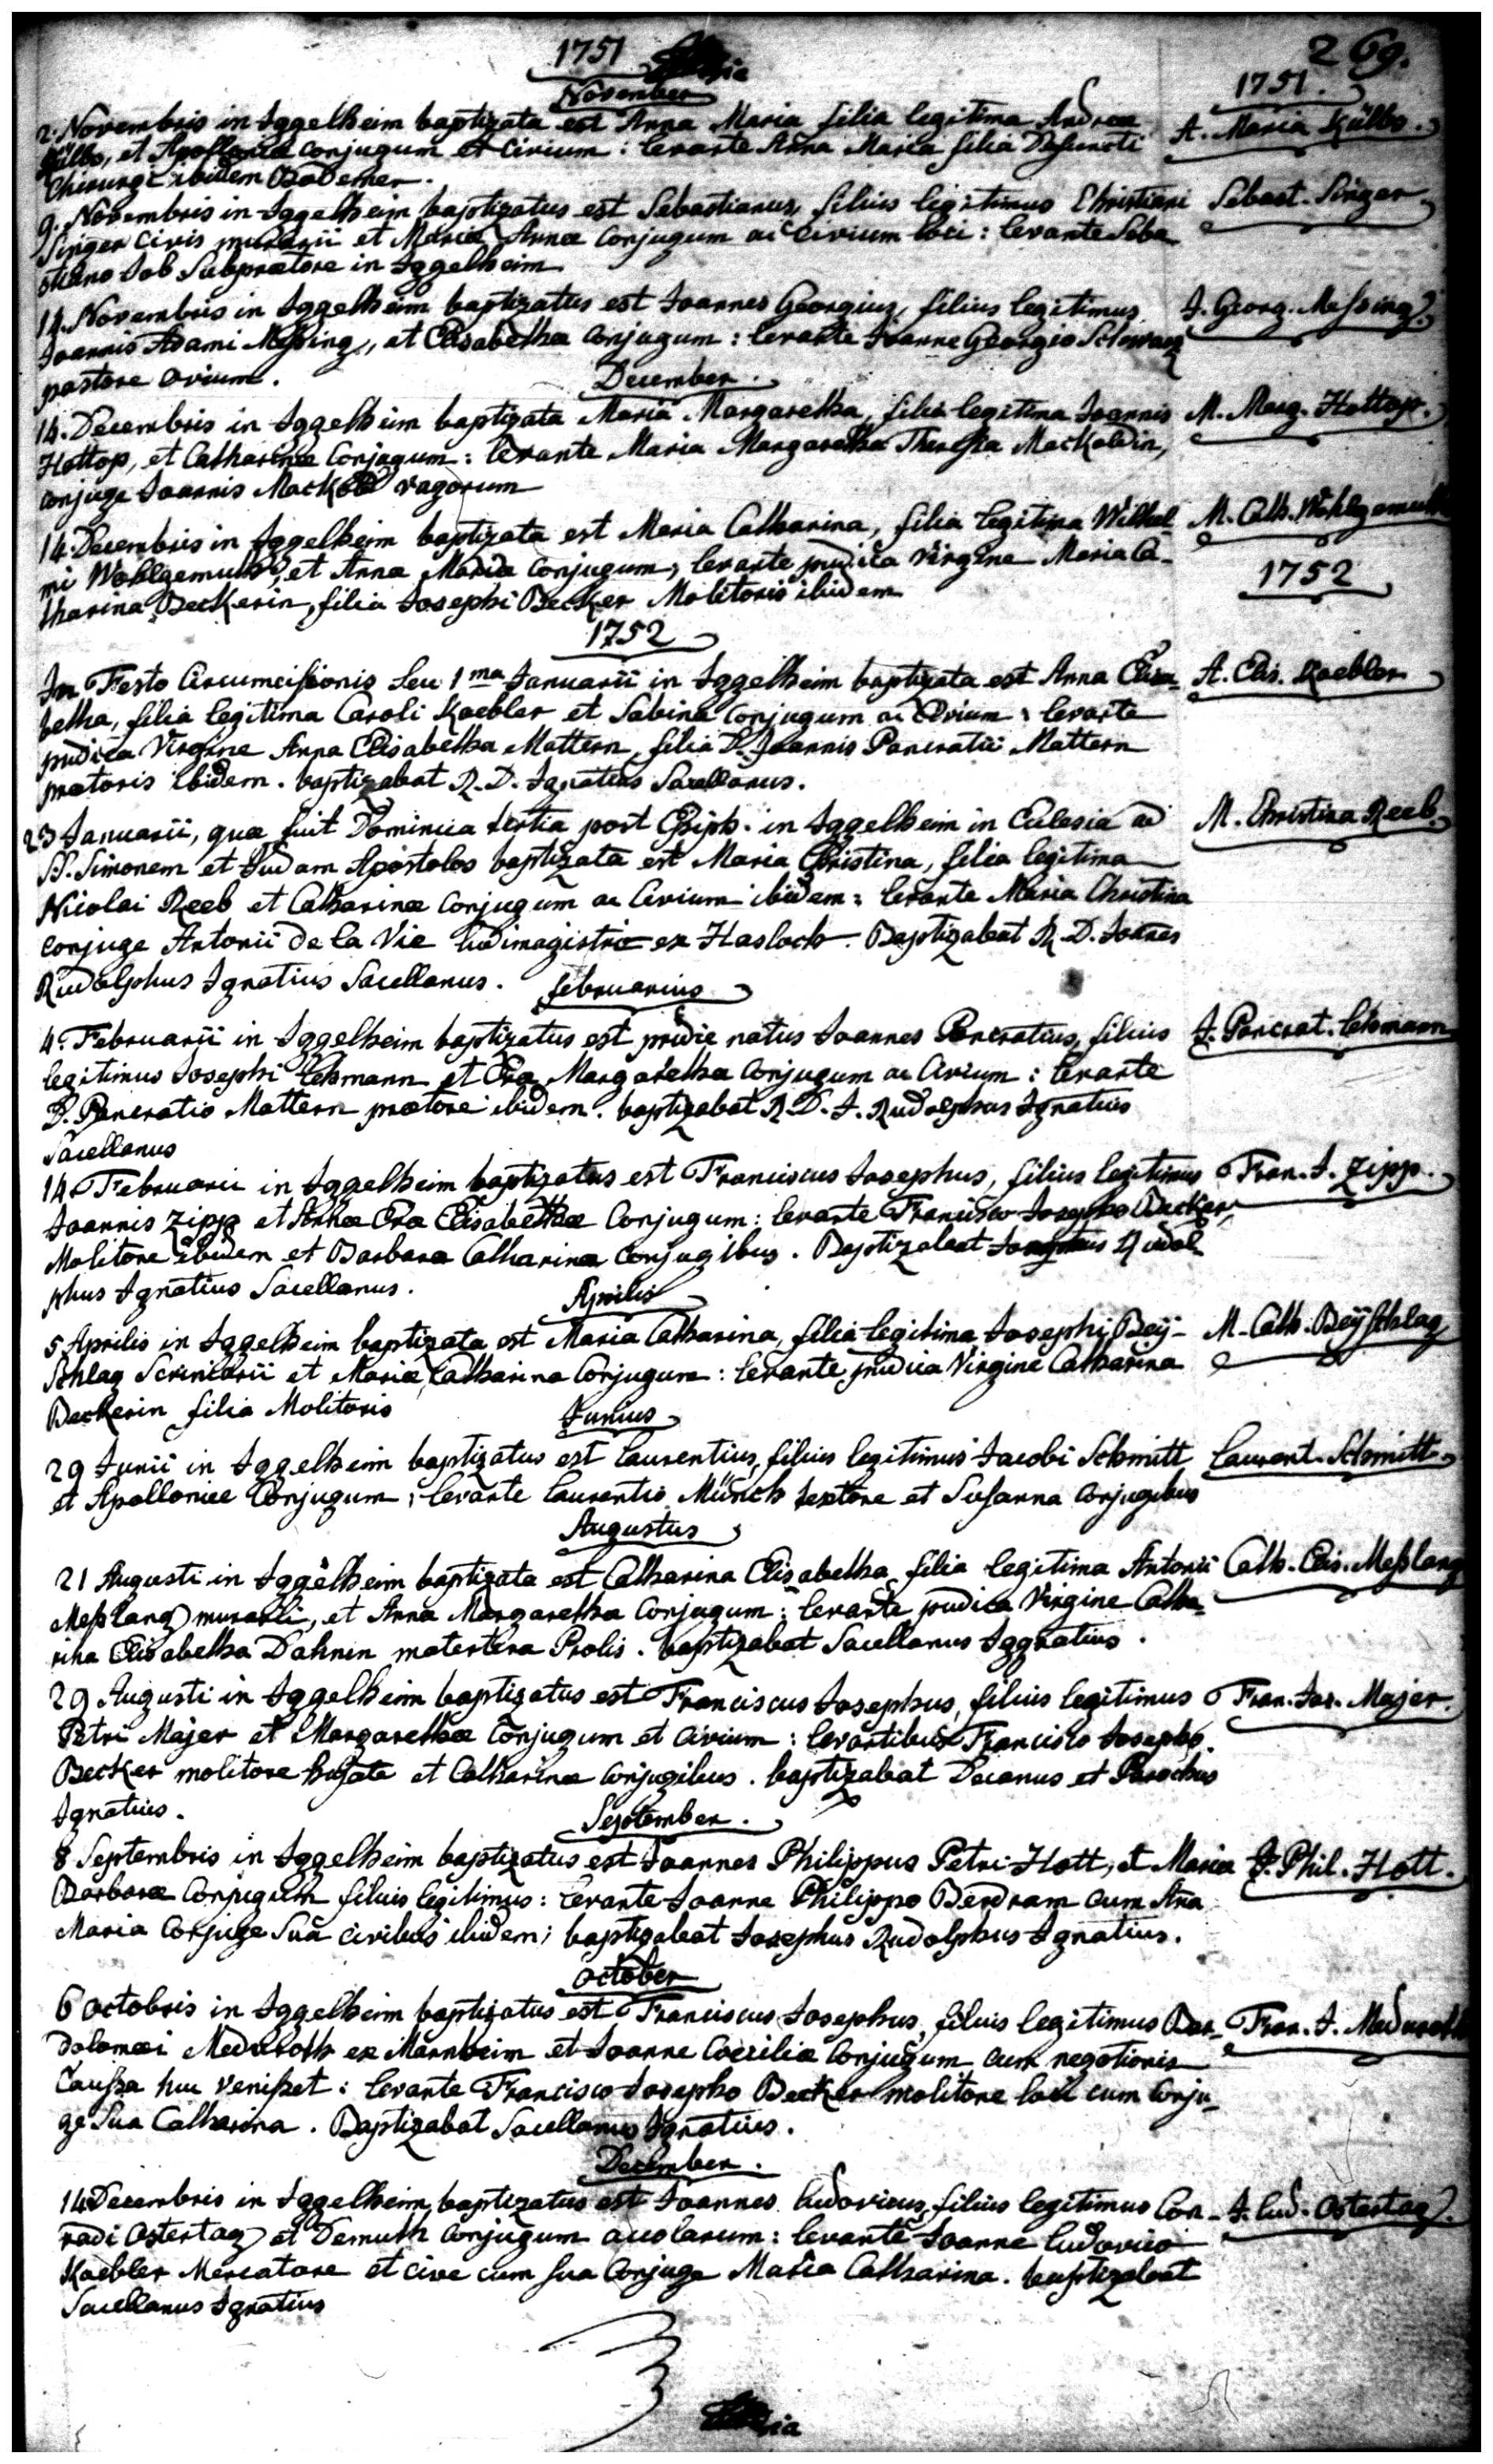 1751
269.
November
1751.
2. Novembris in Iggelheim baptizata est Anna Maria filia legitima Andreæ
A. Maria Külbs.
Külbs, et Apolloniæ conjugum et civium : levante Anna Maria filia Defuncti
Chirurgi ibidem Bodemer.
9. Novembris in Iggelheim baptizatus est Sebastianus, filius legitimus Christiani
Sebast. Singer
Singer civis murarii et Mariæ Annæ conjugum ac civium loci : levante Seba
stiano Job Subprætore in Iggelheim
14. Novembris in Iggelheim baptizatus est Joannes Georgius, filius legitimus
J. Georg. Messing.
Joannis Adami Messing, et Elisabethæ conjugum : levante Joanne Georgio Schwarz
pastore ovium.
December.
14. Decembris in Iggelheim baptizata Maria Margaretha, filia legitima Joannis
M. Marg. Hottop.
Hottop, et Catharinæ Conjugum : levante Maria Margaretha Theresia Mackoldin,
conjuge Joannis Mackold vagorum
14. Decembris in Iggelheim baptizata est Maria Catharina, filia legitima Wilhel
M. Cath. Wohlgemuth
mi Wohlgemuth, et Annæ Mariæ conjugum, levante pudica virgine Maria Ca-
tharina Beckerin, filia Josephi Becker Molitoris ibidem
1752
1752
In Festo Circumcisionis seu 1ma Januarii in Iggelheim baptizata est Anna Elisa-
A. Elis. Kaebler
betha, filia legitima Caroli Kaebler et Sabinæ conjugum ac Civium : levante
pudica Virgine Anna Elisabetha Mattern, filia D. Joannis Pancratii Mattern
prætoris ibidem. baptizabat R. D. Ignatius Sacellanus.
23 Januarii, quæ fuit Dominica tertia post Epiph. in Iggelheim in Eclesia ad
M. Christina Reeb.
SS. Simonem et Judam Apostolos baptizata est Maria Christina, filia legitima
Nicolai Reeb et Catharinæ conjugum ac Civium ibidem : levante Maria Christina
conjuge Antonii de la Vie ludimagistri ex Hasloch. Baptizabat R. D. Joannes
Rudolphus Ignatius Sacellanus.
februarius
4. Februarii in Iggelheim baptizatus est pridie natus Joannes Pancratius, filius
J. Pancrat. Lehmann
legitimus Josephi Lehmann et Eva Margaretha Conjugum ac Civium : levante
D. Pancratio Mattern prætore ibidem. baptizabat R. D. J. Rudolphus Ignatius
Sacellanus
14. Februarii in Iggelheim baptizatus est Franciscus Josephus, filius legitimus
Fran. J. Zipp.
Joannis Zipp et Annæ Evæ Elisabethæ Conjugum : levante Francisco Josepho Becker
Molitore ibidem et Barbara Catharina conjugibus. Baptizabat Rudol
phus Ignatius Sacellanus.
Aprilis
5 Aprilis in Iggelheim baptizata est Maria Catharina, filia legitima Josephi Beÿ-
M. Cath. Beÿschlag
schlag Scriniarii et Mariæ Catharina Conjugum : levante pudica Virgine Catharina
Beckerin filia Molitoris
Junius
29 Junii in Iggelheim baptizatus est Laurentius, filius legitimus Jacobi Schmitt
Laurent. Schmitt
et Apolloniæ Conjugum ; levante Laurentio Münch textore et Susanna Conjugibus
Augustus
21 Augusti in Iggelheim baptizata est Catharina Elisabetha, filia legitima Antonii
Cath. Elis. Meßlang
Meßlang murarii, et Anna Margaretha Conjugum : levante pudica Virgine Catha-
rina Elisabetha Dahnin matertera Prolis. baptizabat Sacellanus Iggnatius.
29 Augusti in Iggelheim baptizatus est Franciscus Josephus, filius legitimus
Fran. Jos. Majer.
Petri Majer et Margarethæ Conjugum et Civium : levantibus Francisco Josepho
Becker molitore hujate et Catharina Conjugibus. baptizabat Decanus et Parochus
Ignatius.
September.
8 Septembris in Iggelheim baptizatus est Joannes Philippus Petri Hott, et Mariæ
J. Phil. Hott.
Barbaræ Conjugum filius legitimus : levante Joanne Philippo Bendram cum Aña
Maria Conjuge Sua civibus ibidem ; baptizabat Josephus Rudolphus Ignatius.
October
6 Octobris in Iggelheim baptizatus est Franciscus Josephus, filius legitimus Bar-
Fran. J. Meduroth
dolomæi Meduroth ex Mannheim et Joanne Coeciliæ Conjugum cum negotionis
Caussa huc venisset : levante Francisco Josepho Becker molitore loci cum Conju-
ge Sua Catharina. Baptizabat Sacellanus Ignatius.
December.
14 Decembris in Iggelheim baptizatus est Joannes Ludovicus, filius legitimus Con-
J. Lud. Ostertag.
radi Ostertag et Demuth Conjugum acolarum : levante Joanne Ludovico
Kaebler Mercatore et cive cum sua Conjuge Maria Catharina. baptizabat
Sacellanus Ignatius